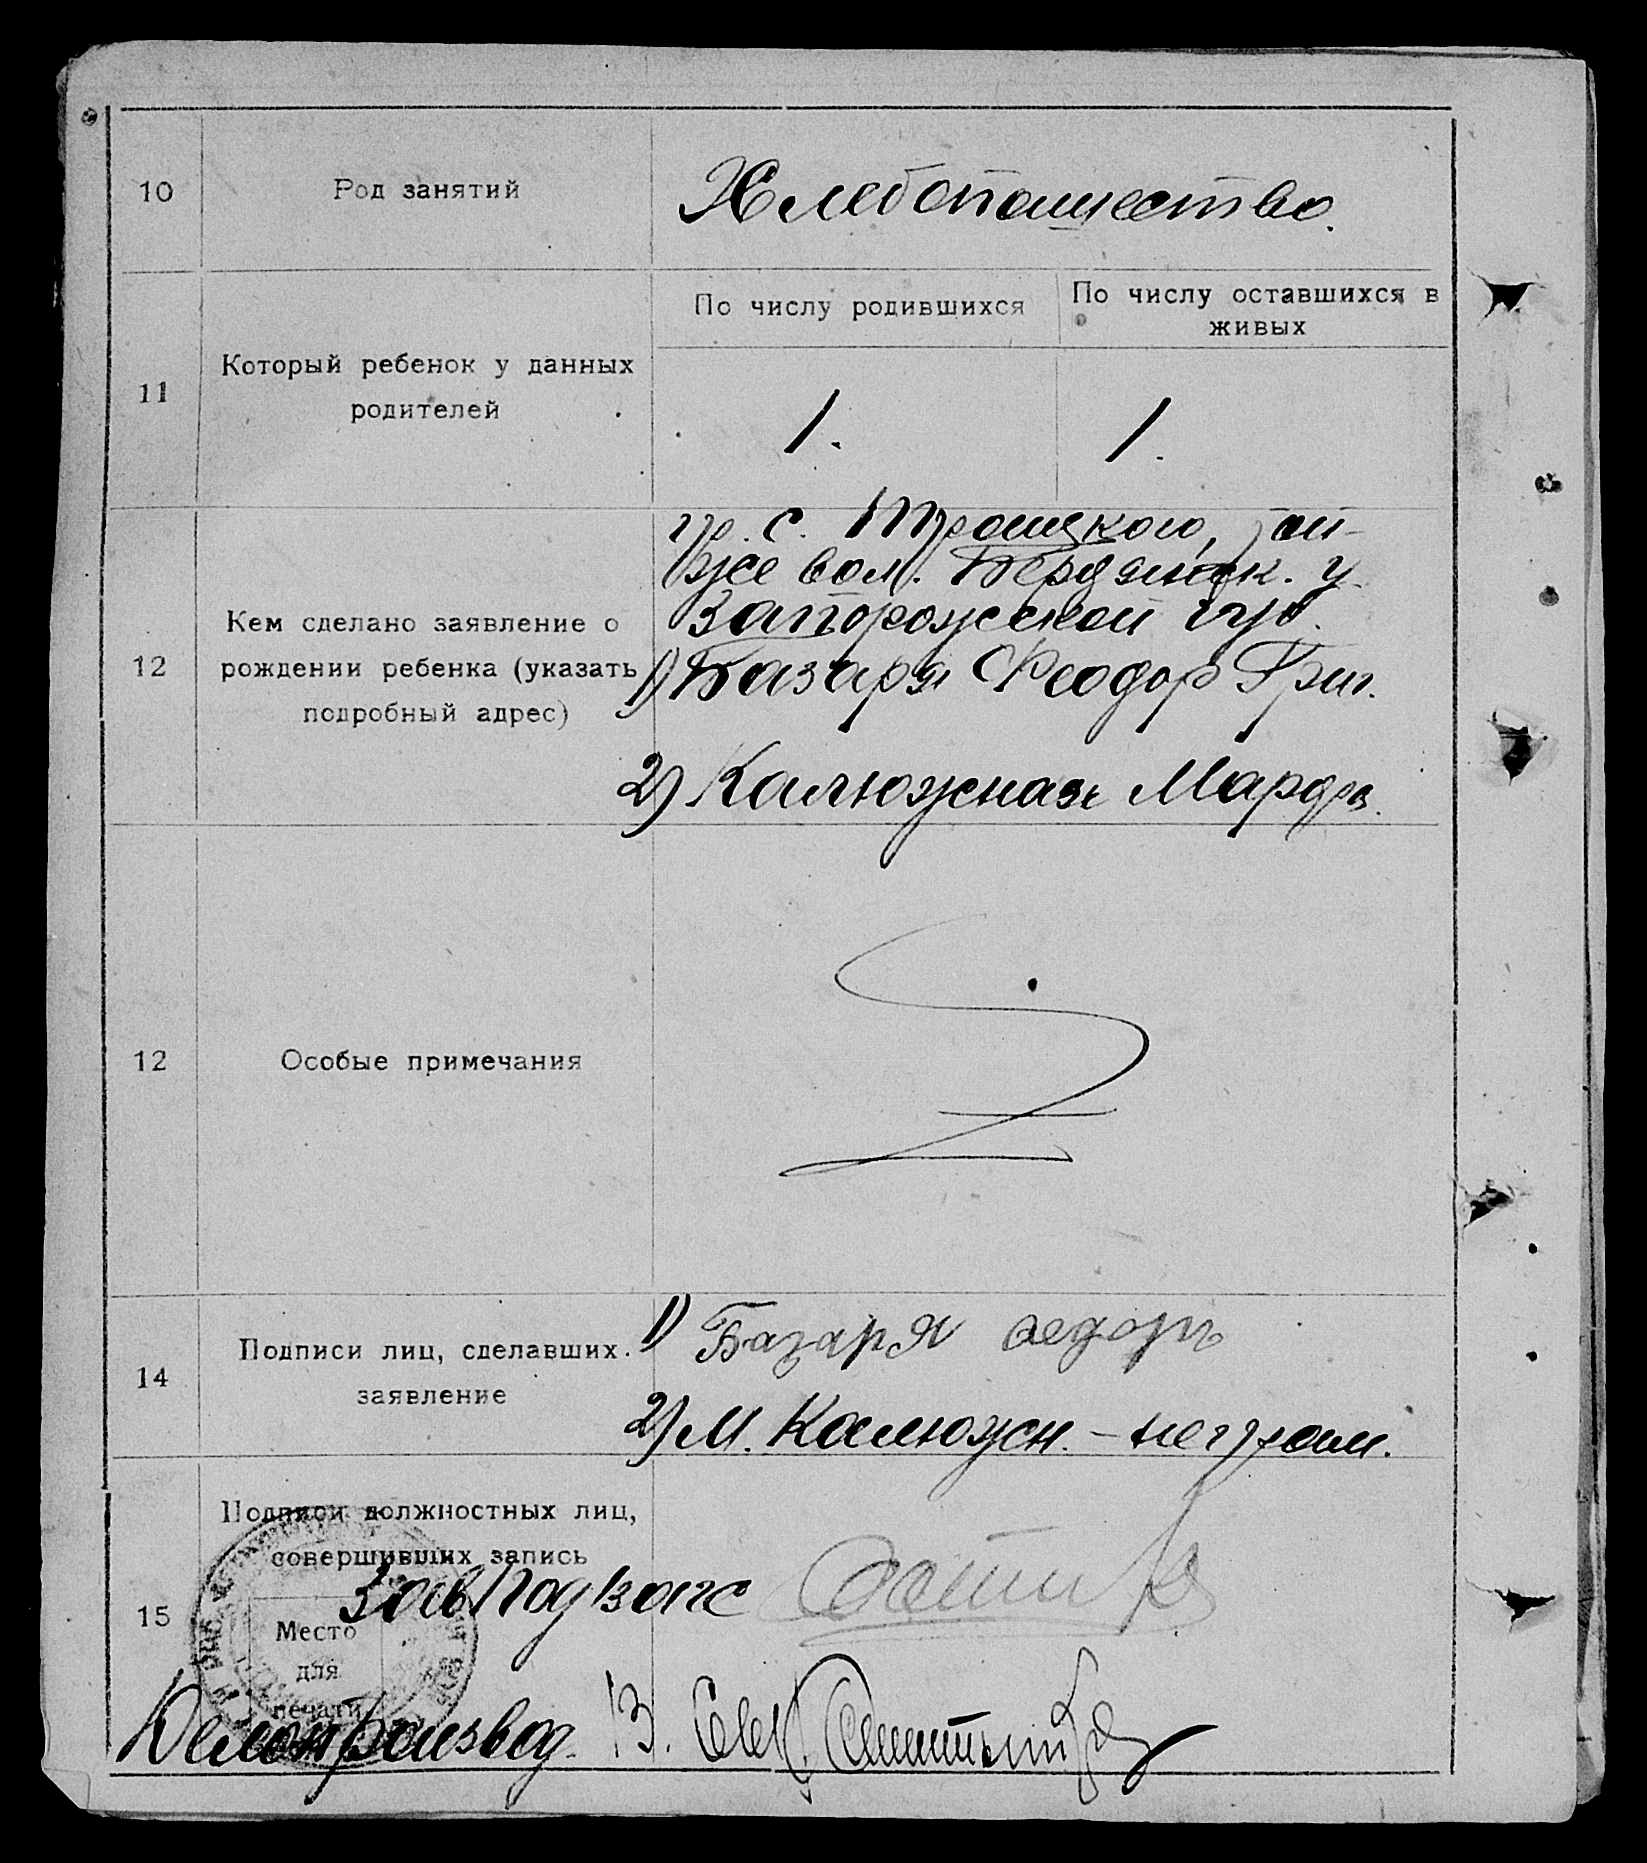 10
Род занятий
Хлебопашество.
11
Который ребенок у данных
родителей
По числу родившихся
По числу оставшихся в
живых
1.
1.
12
Кем сделано заявление о
рождении ребенка (указать
подробный адрес)
гр. с. Троицкого, той-
же вол. Бердянск. у.
Запорожской губ.
1) Базаря Феодор Григ.
2) Калюжная Марфа.
12
Особые примечания
14
Подписи лиц, сделавших
заявление
1) Базаря Федоръ
2) М. Калюжн. – неграм.
15
Подписи должностных лиц,
совершивших запись
ЗавПодЗагс
Место
для
печати
Делопроизвод.